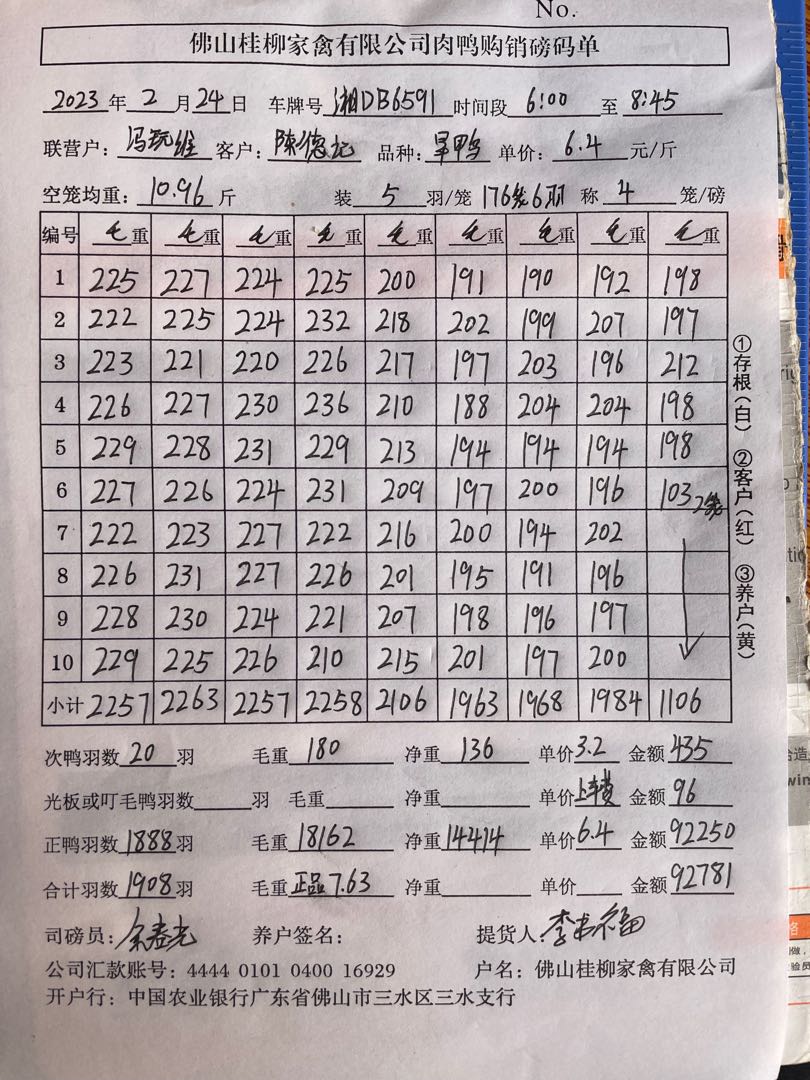 No.
佛山桂柳家禽有限公司肉鸭购销磅码单
2023年2月24日 车牌号 湘DB6591 时间段 6:00 至 8:45
联营户: 冯玩维 客户: 陈德记 品种: 旱鸭 单价: 6.4 元/斤
空笼均重: 10.96 斤 装 5 羽/笼 176笼6羽 称 4 笼/磅
编号 毛重 毛重 毛重 毛重 毛重 毛重 毛重 毛重 毛重
1 225 227 224 225 200 191 190 192 198
2 222 225 224 232 218 202 199 207 197
3 223 221 220 226 217 197 203 196 212
4 226 227 230 236 210 188 204 204 198
5 229 228 231 229 213 194 194 194 198
6 227 226 224 231 209 197 200 196 103 2笼
7 222 223 227 222 216 200 194 202
8 226 231 227 226 201 195 191 196
9 228 230 224 221 207 198 196 197
10 229 225 226 210 215 201 197 200
小计 2257 2263 2257 2258 2106 1963 1968 1984 1106
次鸭羽数 20 羽 毛重 180 净重 136 单价 3.2 金额 435
光板或叮毛鸭羽数 羽 毛重 净重 单价 上车费 金额 96
正鸭羽数 1888 羽 毛重 18162 净重 14414 单价 6.4 金额 92250
合计羽数 1908 羽 毛重 正品7.63 净重 单价 金额 92781
司磅员: 养户签名: 提货人: 李
公司汇款账号: 4444 0101 0400 16929 户名: 佛山桂柳家禽有限公司
开户行: 中国农业银行广东省佛山市三水区三水支行
①存根(白) ②客户(红) ③养户(黄)